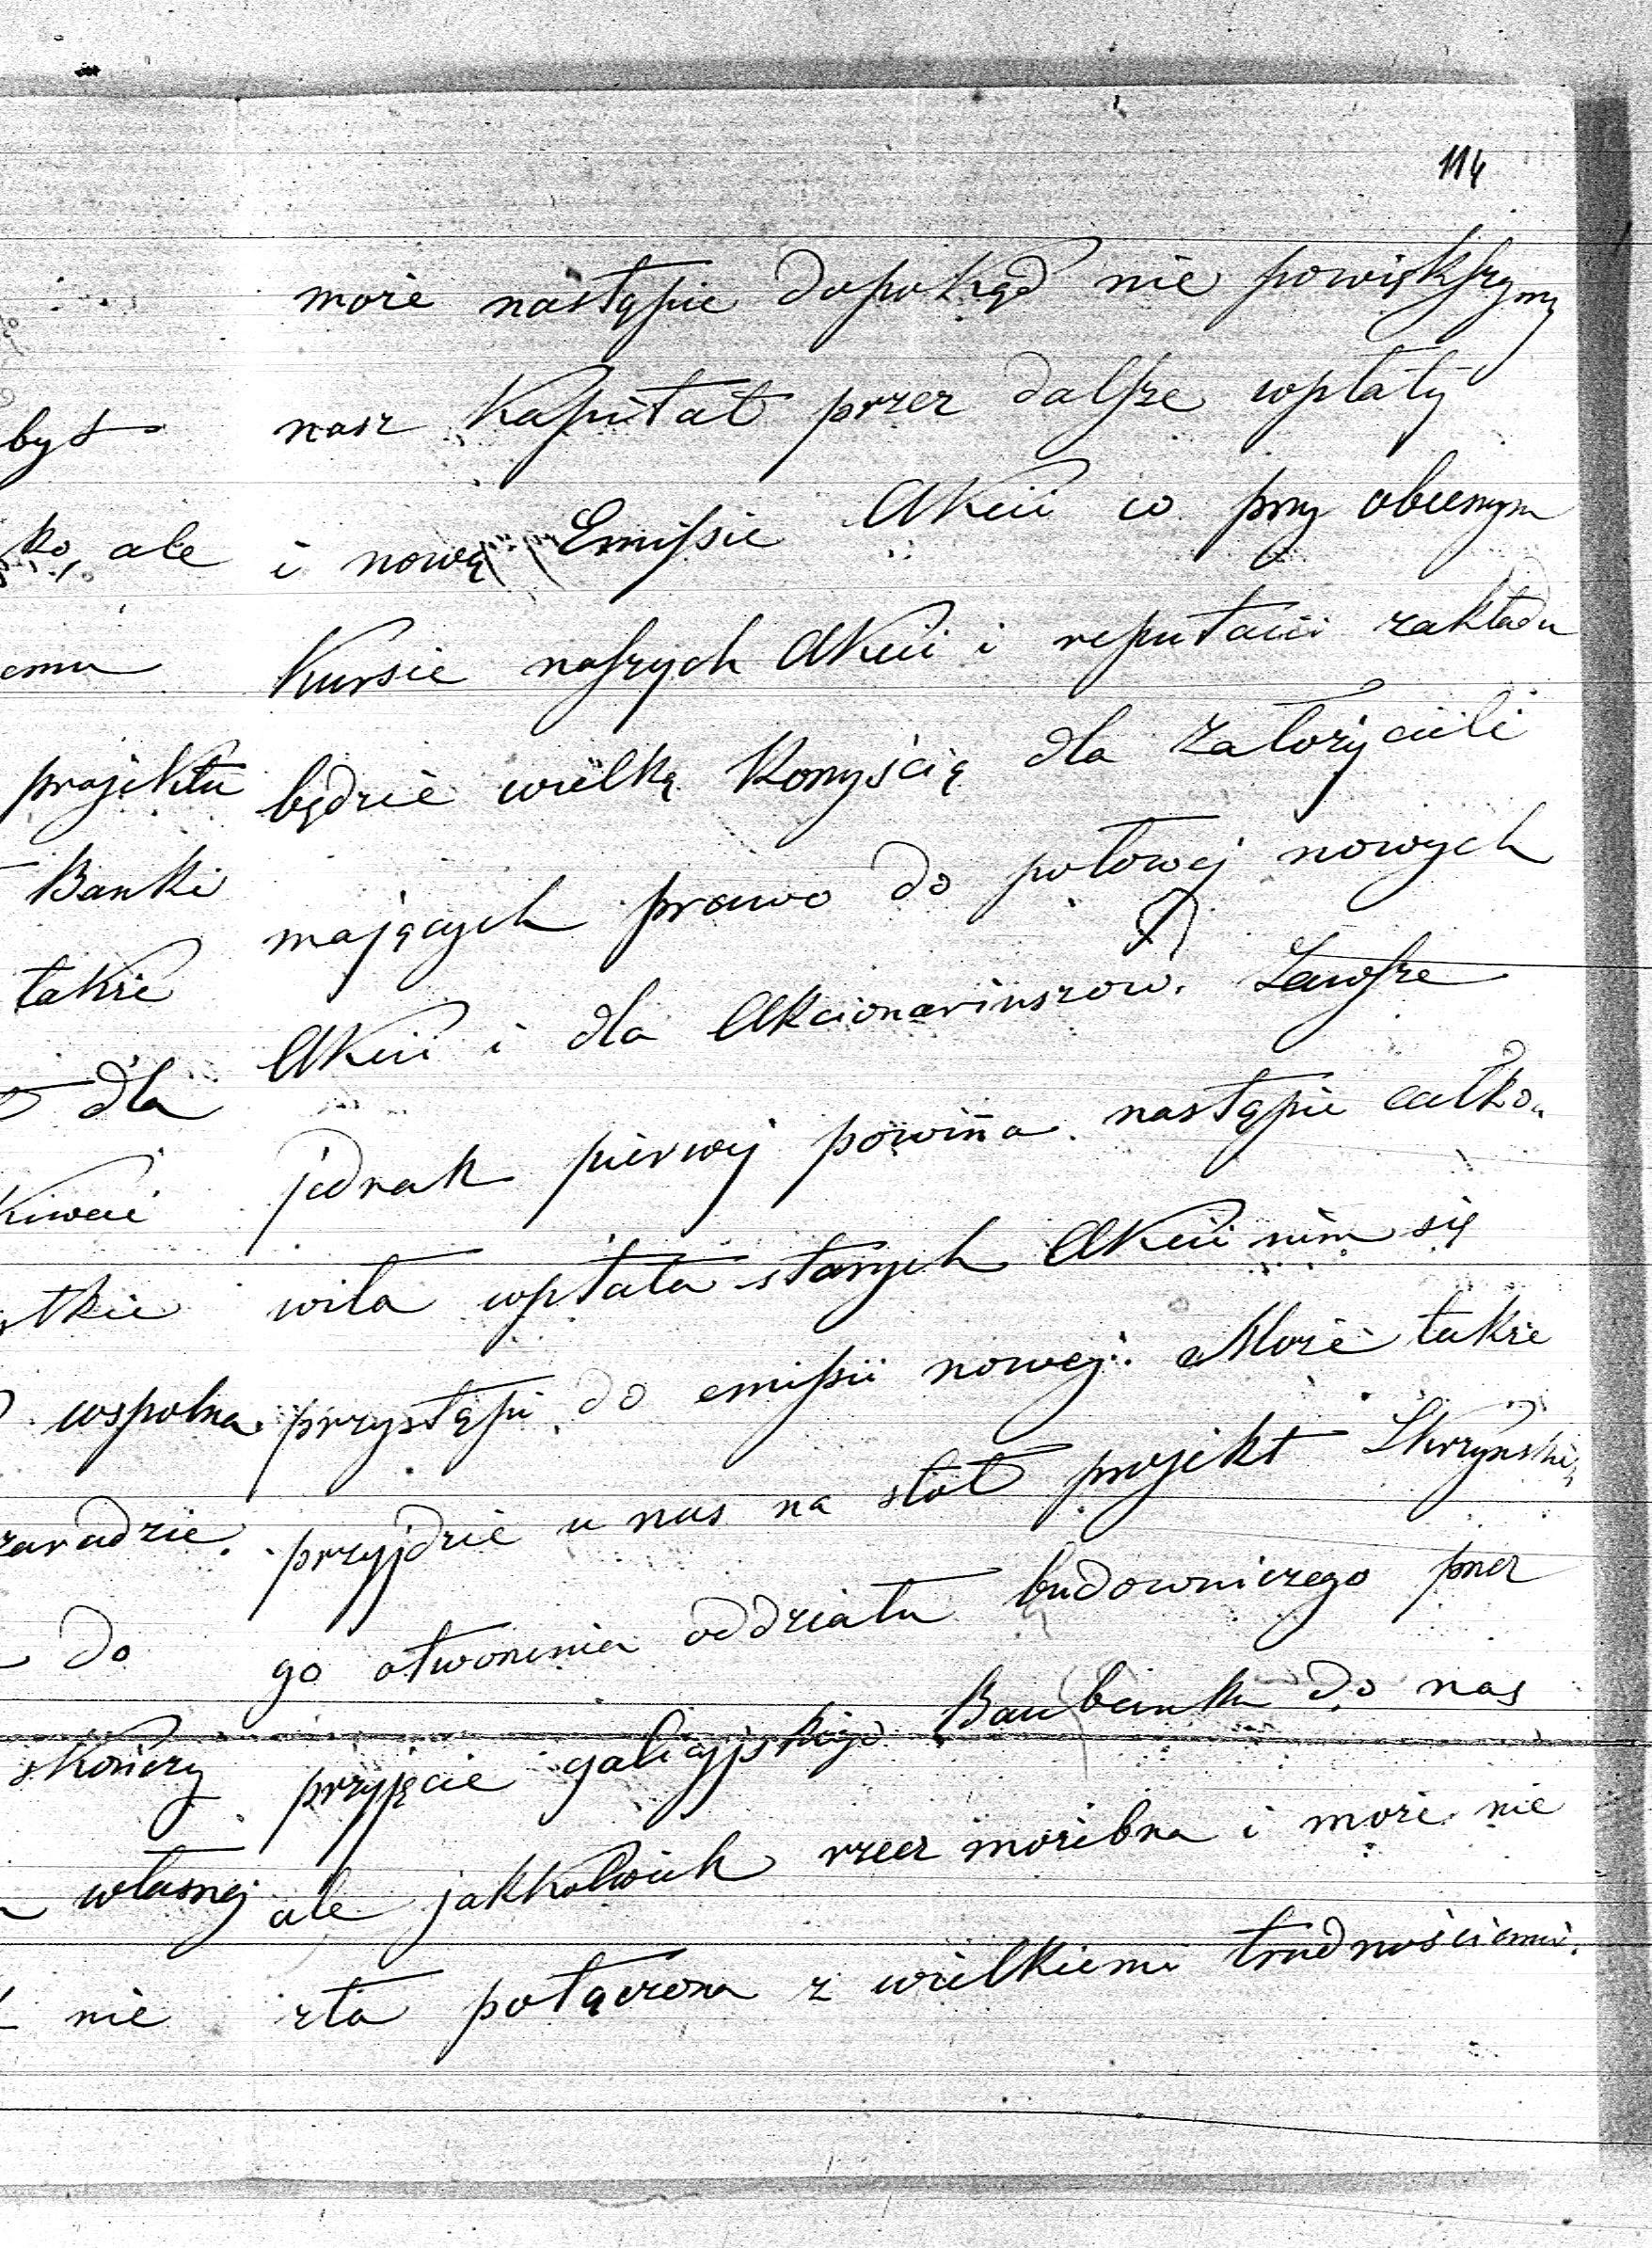 114
może nastąpić dopokąd nie powiększymy
nasz Kapitał przez dalsze wpłaty
i nową Emissie Akcii co przy obecnym
Kursie naszych Akcii i reputacii zakładu
będzie wielką Korzyścią dla założycieli
mających prawo do połowej nowych
Akcii i dla Akcionariuszow. Zawsze
jednak pierwej powiña nastąpić całko„
wita wpłata starych Akcii nim się
przystąpi do emissii nowej. Może także
przyjdzie u nas na stół projekt Skrzyński„
go otworzenia oddziału budowniczego przez
przyjęcie galicyjskiego Baubanku do nas
ale jakkolwiek rzecz możebna i może nie
zła połączona z wielkiemi trudnościami.
byt
ko, ale
emu
projektu
Banki
takie
dla
kiwać
stkie
wspolna
zaradzić.
do
skończy
własnej
nie